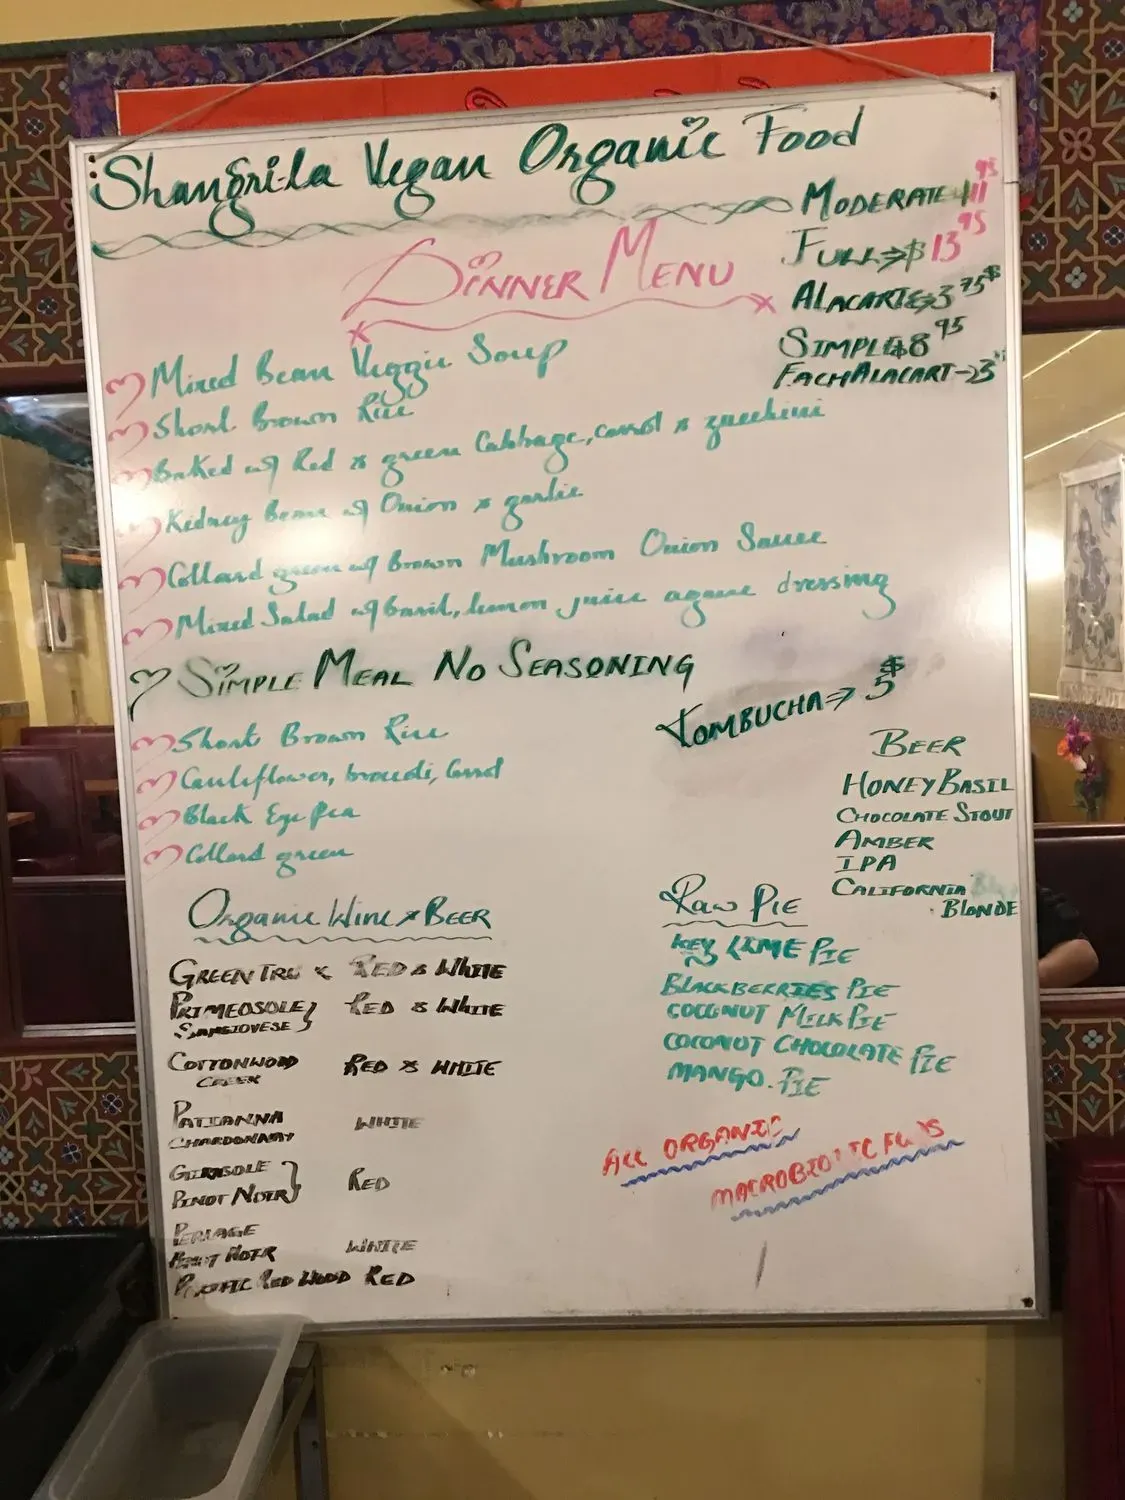 Shangri-la Vegan Organic Food
MODERATE 11 95
FULL → $ 13 95
DINNER MENU
ALACARTE → 3 75 $
SIMPLE $ 8 95
EACH ALACART → 3
Mixed Bean Veggie Soup
Short Brown Rice
Baked w/ Red & green Cabbage, carrot & zucchini
Kidney Beans w/ Onion & garlic
Collard green w/ Brown Mushroom Onion Sauce
Mixed Salad w/ basil, lemon juice agave dressing
SIMPLE MEAL NO SEASONING
KOMBUCHA → 5 $
Short Brown Rice
Cauliflower, brocoli, Carrot
Black Eye Pea
Collard green
BEER
HONEY BASIL
CHOCOLATE STOUT
AMBER
IPA
CALIFORNIA
BLONDE
Organic Wine & BEER
GREEN TRU RED & WHITE
PRIMEOSOLE RED & WHITE
SANGIOVESE
COTTONWOOD RED & WHITE
CREEK
PATIANNA WHITE
CHARDONNAY
GIRASOLE
PINOT NOIR RED
PERLAGE
PINOT NOIR WHITE
PACIFIC RED WOOD RED
Raw PIE
KEY LIME PIE
BLACKBERRIES PIE
COCONUT MILK PIE
COCONUT CHOCOLATE PIE
MANGO. PIE
ALL ORGANIC
MACROBIOTIC